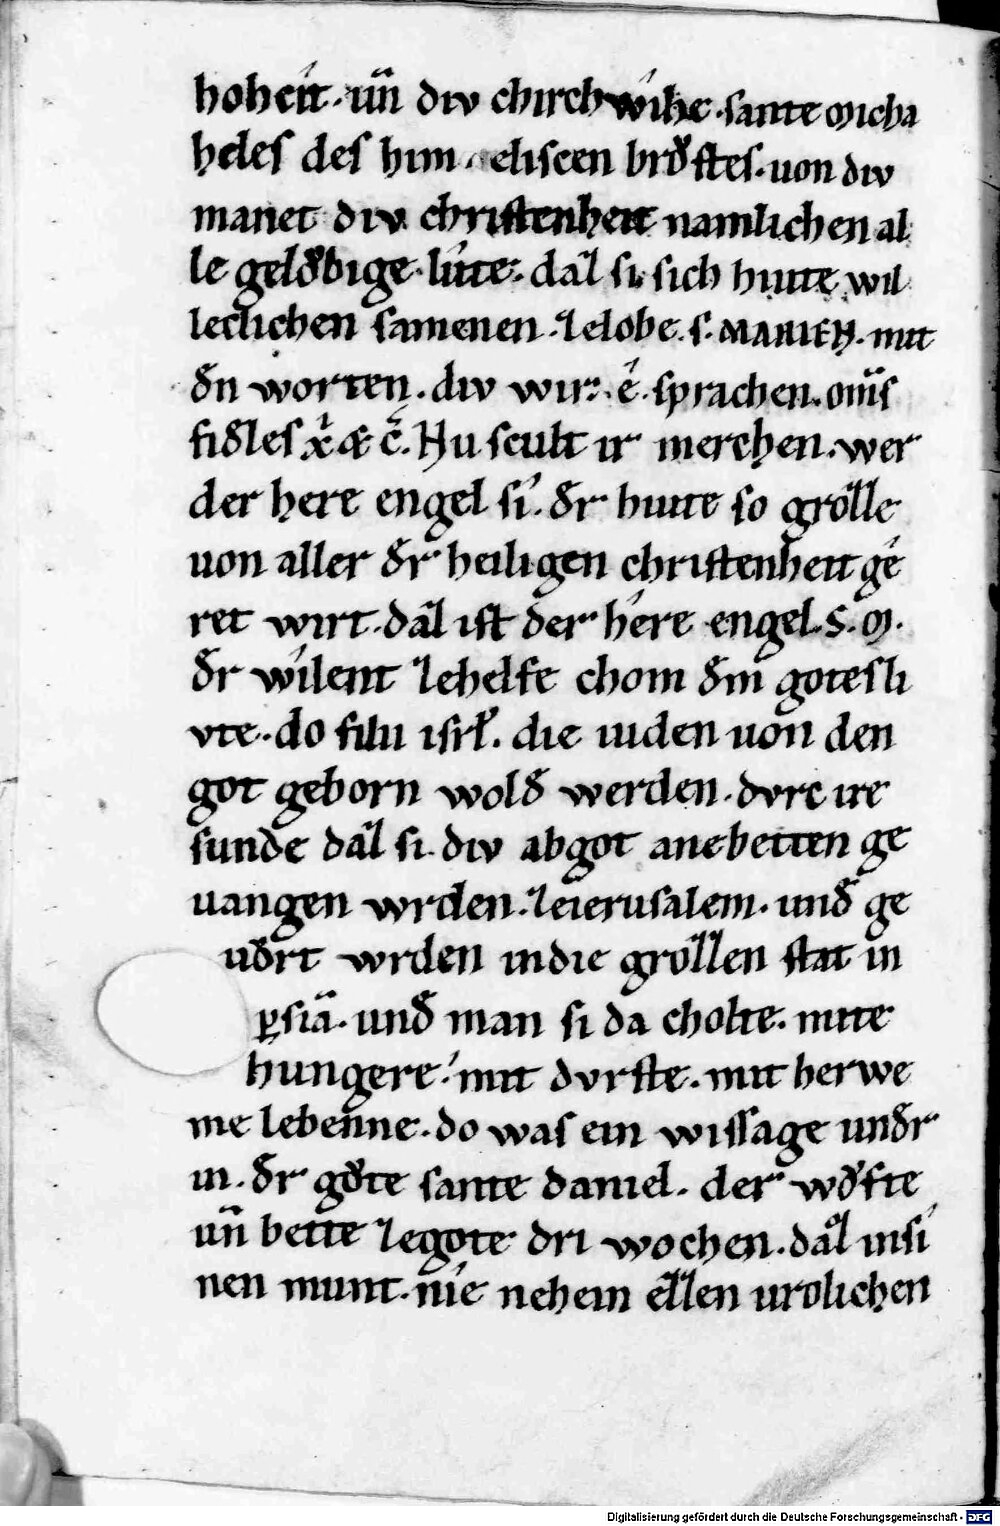 hoheit. uñ div chirchwihe. sante Micha
heles des him eliscen brŏstes. uon div
manet div christenheit namlichen al
le gelŏbige lúte. daz si sich hiute wil
leclichen samenen. ze lobe. s. MARIEN. mit
đn worten. div wir. é. sprachen. Om̄s
fiđles x̄ æ c̄. Nu scult ir merchen. wer
der here engel sí. đr hiute so grozze
uon aller đr heiligen christenheit gé
ret wirt. daz ist der hére engel. S. M.
đr wílent zehelfe chom đm gotes li
vte. do filii isrł. die iuden uon den
got geborn wolđ werden. dvrc ire
sunde daz si. div abgot anebetten ge
uangen wrden. ze ierusalem. unđ ge
uŏrt wrden indie grozzen stat in
ꝑsiā. unđ man si da cholte. mite
hungere. mit dvrste. mit herwe
me lebenne. do was ein wissage unđr
in. đr gŏte sante daniel. der wŏfte
uñ bette zegote dri wochen. daz insí
nen munt. nie nehein ezzen urolichen
Digitalisierung gefördert durch die Deutsche Forschungsgemeinschaft - DFG